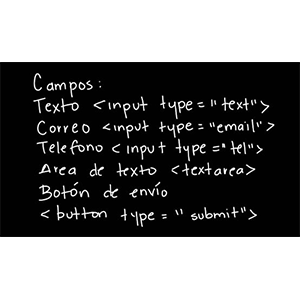 Campos:
Texto <input type="text">
Correo <input type="email">
Telefono <input type="tel">
Area de texto <textarea>
Botón de envío
<button type="submit">